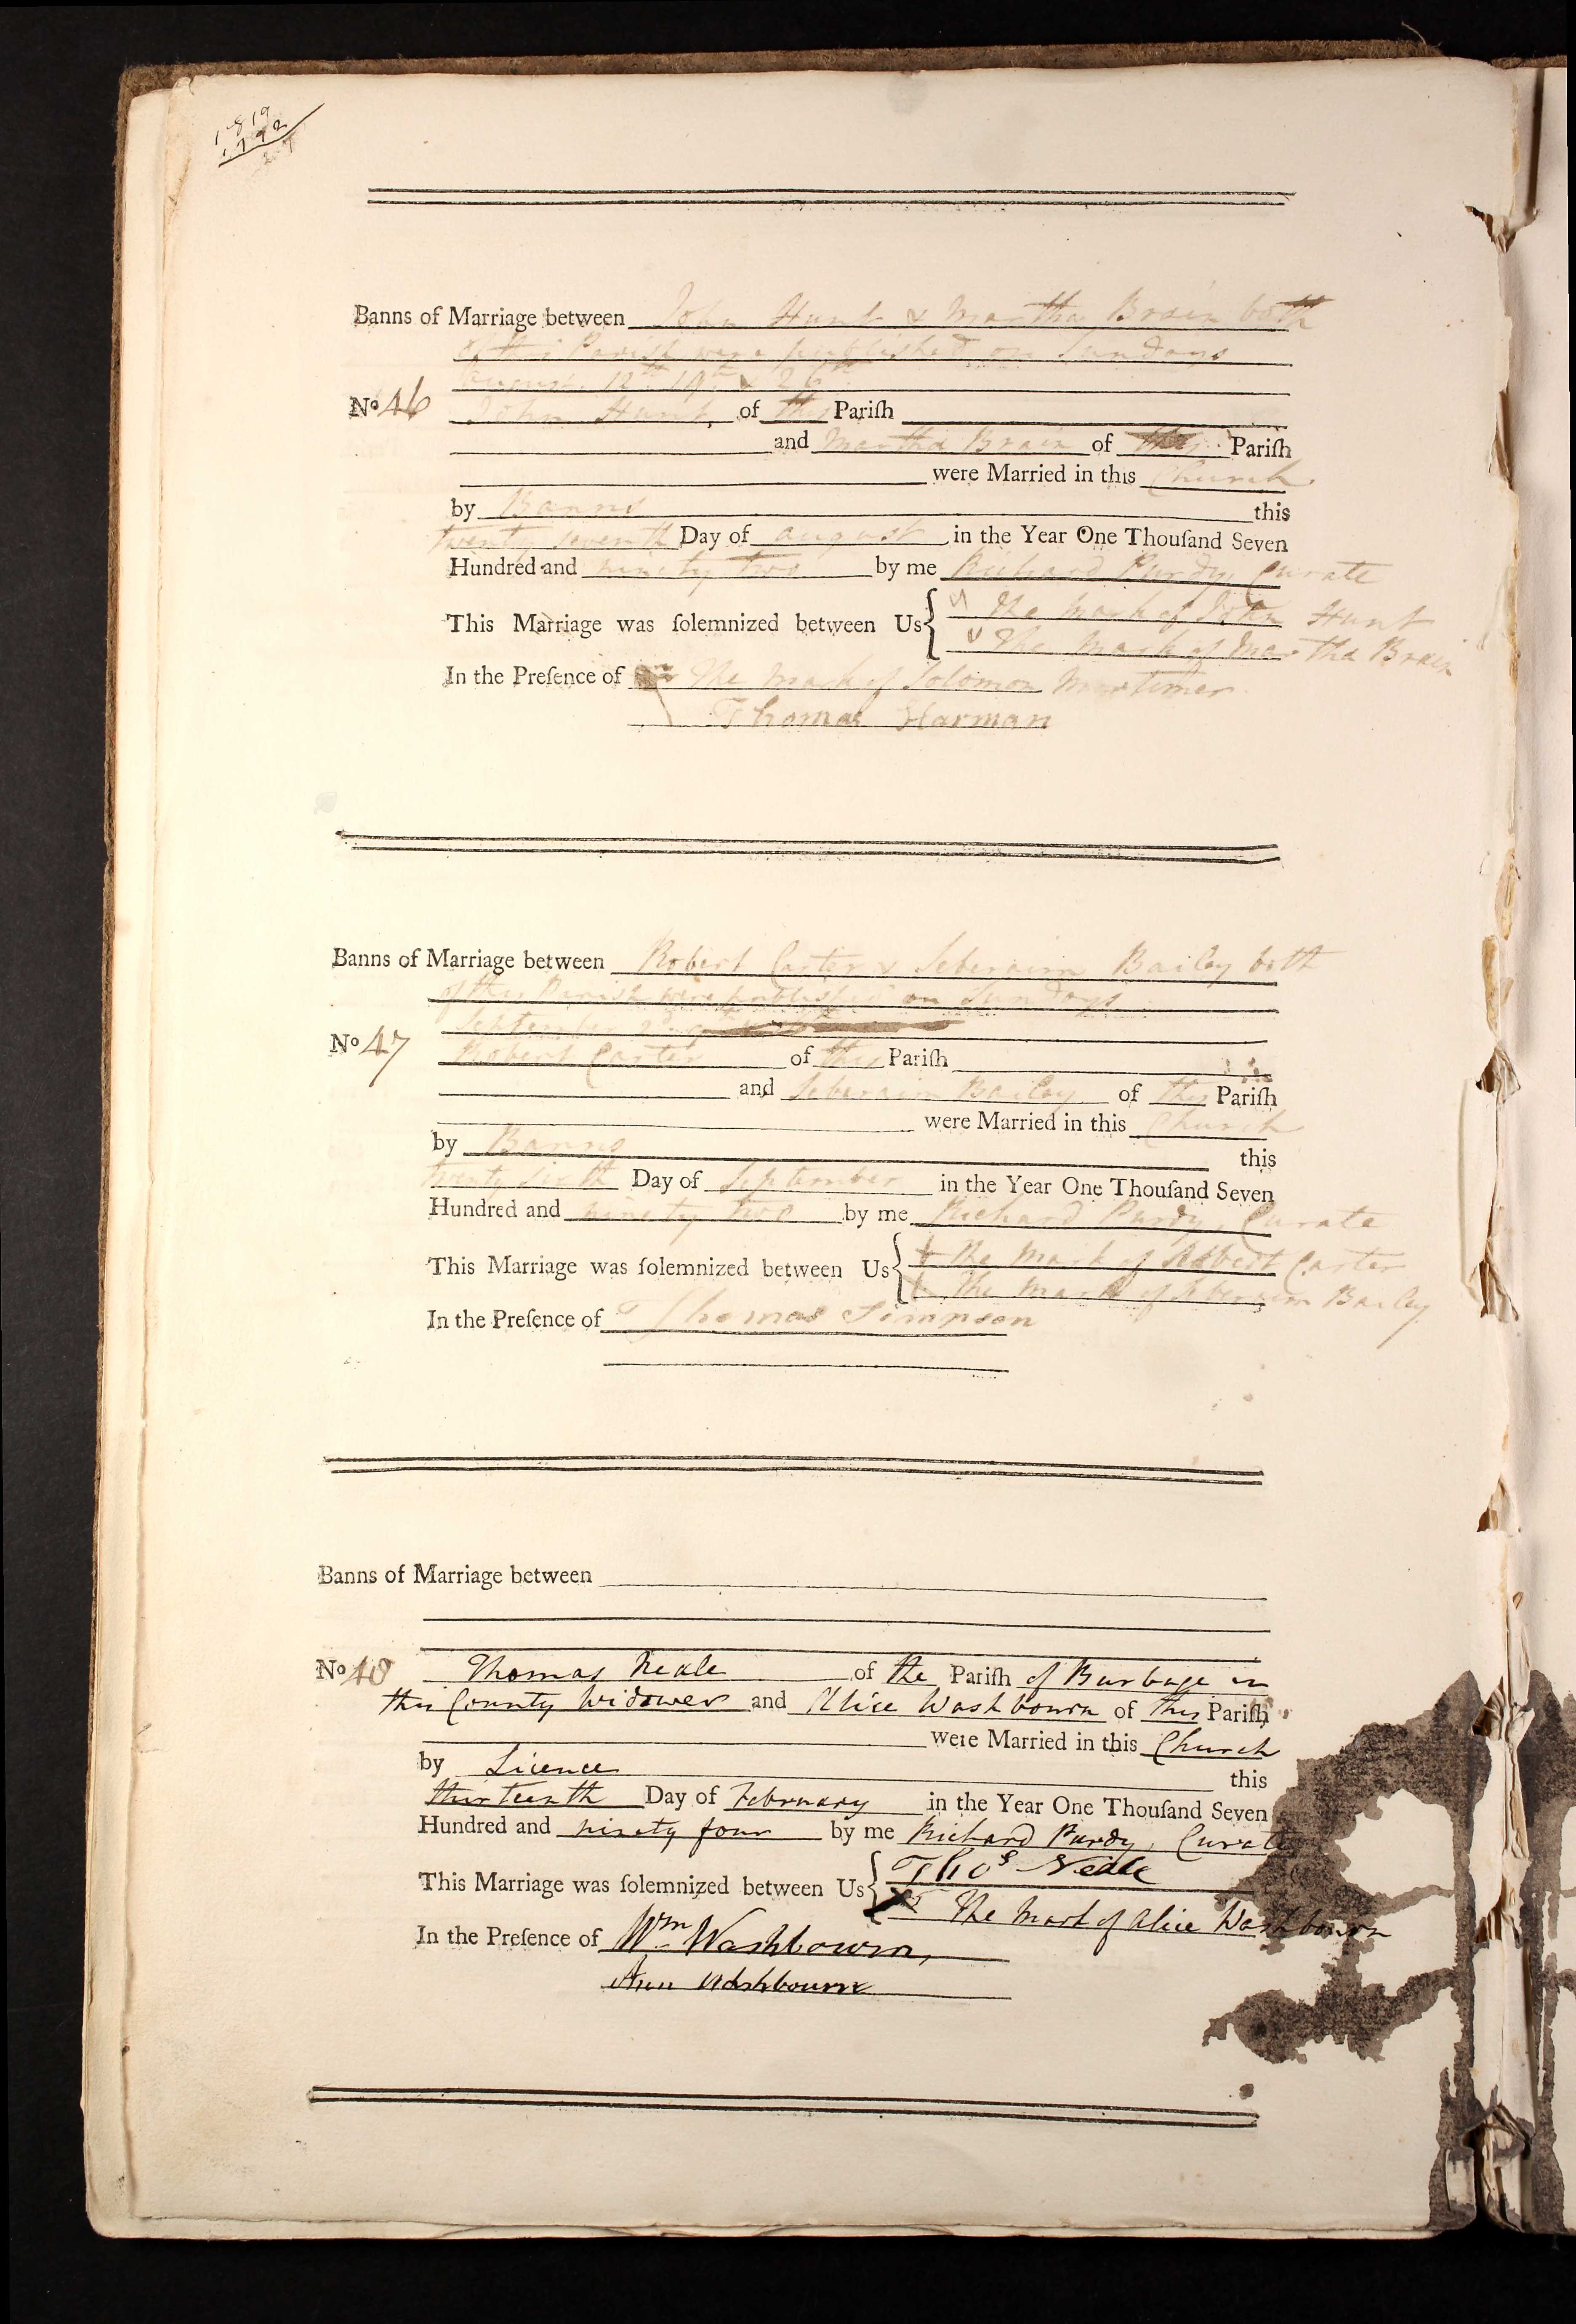 1819
1792
27
Banns of Marriage between John Hunt & Martha Brain both
of this Parish were published on Sundays
August 12th 19th & 26th
No 46 John Hunt of this Pariſh
and Martha Brain of this Pariſh
were Married in this Church
by Banns this
twenty seventh Day of august in the Year One Thouſand Seven
Hundred and ninety two by me Richard Purdy, Curate
This Marriage was ſolemnized between Us The Mark of John Hunt
The Mark of Martha Brain
In the Preſence of The Mark of Solomon Mortimer
Thomas Harman
Banns of Marriage between Robert Carter & Seberain Bailey both
of this Parish were published on Sundays
September
No 47 Robert Carter of this Pariſh
and Seberain Bailey of this Pariſh
were Married in this Church
by Banns this
twenty sixth Day of September in the Year One Thouſand Seven
Hundred and ninety two by me Richard Purdy, Curate
This Marriage was ſolemnized between Us The Mark of Robert Carter
The Mark of Seberain Bailey
In the Preſence of Thomas Simpson
Banns of Marriage between
No 48 Thomas Neale of the Pariſh of Burbage in
this County Widower and Alice Washbourn of this Pariſh
were Married in this Church
by Licence this
thirteenth Day of February in the Year One Thouſand Seven
Hundred and ninety four by me Richard Purdy, Curate
This Marriage was ſolemnized between Us Thos Neale
The Mark of Alice Washbourn
In the Preſence of Wm Washbourn,
Ann Washbourn